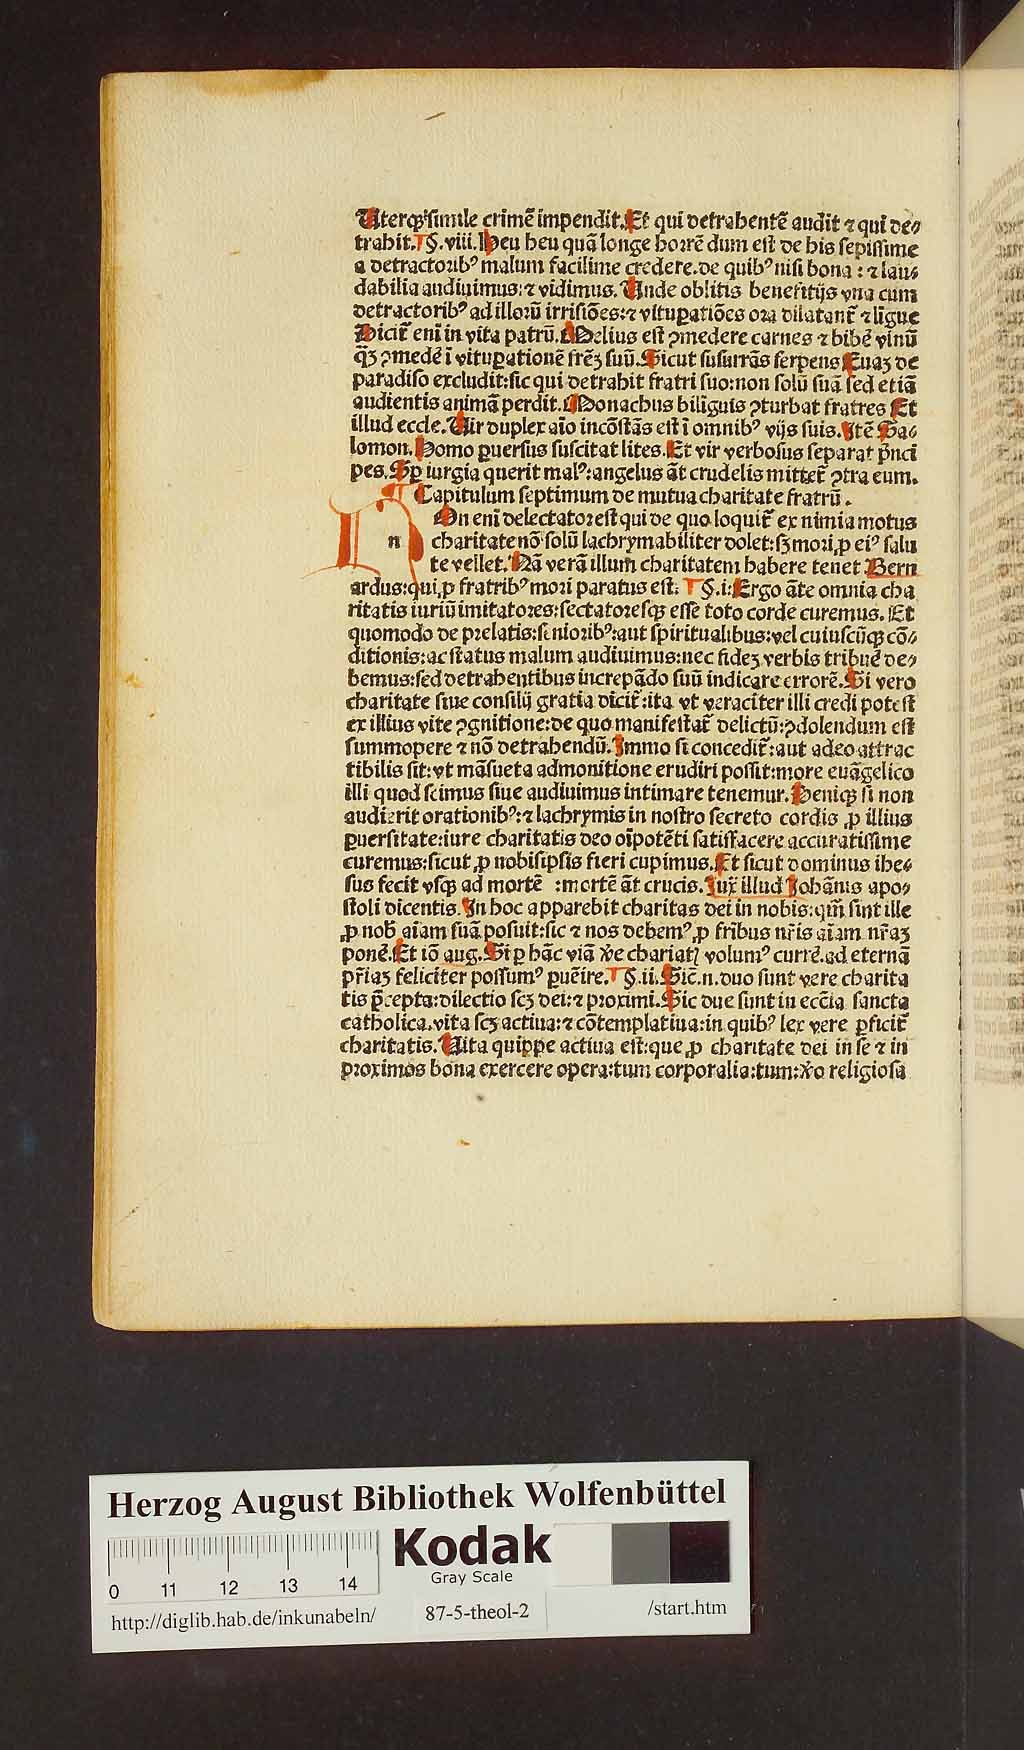 Uterqꝫ simile crimē impendit. Et qui detrahentē audit ⁊ qui de⸗
trahit. ¶ §. viii. Heu heu quā longe horrēdum est de his sepissime
a detractoribꝰ malum facilime credere. de quibꝰ nisi bona : ⁊ lau⸗
dabilia audiuimus: ⁊ vidimus. Unde oblitis benefitijs vna cum
detractoribꝰ ad illorū irrisiōes: ⁊ vituꝑatiōes ora dilatant᷑ ⁊ ligue
Dicit᷑ eni in vita patrū. Melius est ꝯmedere carnes ⁊ bibe᷑ vinū
qꝫ̄ ꝯmede᷑ ī vituꝑationē frēꝫ suū. Sicut susurrās serpens Euaꝫ de
paradiso excludit: sic qui detrahit fratri suo: non solū suā sed etiā
audientis animā perdit. Monachus biliguis ꝯturbat fratres Et
illud eccle. Uir duplex aīo incōstās est ī omnibꝰ vijs suis. Itē Sa⸗
lomon. Homo ꝑuersus suscitat lites. Et vir verbosus separat pͥnci
pes. Sꝑ iurgia querit malꝰ: angelus āt crudelis mittet᷑ ꝯtra eum.
¶ Capitulum septimum de mutua charitate fratrū.
n On eni delectator est qui de quo loquit᷑ ex nimia motus
charitate nō solū lachrymabiliter dolet: sꝫ mori ꝓ eiꝰ salu
te vellet. Nā verā illum charitatem habere tenet Bern
ardus: qui ꝓ fratribꝰ mori paratus est. ¶ §. i: Ergo āte omnia cha
ritatis iuriū imitatores: sectatoresqꝫ esse toto corde curemus. Et
quomodo de prelatis: senioribꝰ: aut spiritualibus: vel cuiuscūqꝫ cō⸗
ditionis: ac status malum audiuimus: nec fideꝫ verbis tribue᷑ de⸗
bemus: sed detrahentibus increpādo suū indicare errorē. Si vero
charitate siue consilij gratia dicit᷑: ita vt veraciter illi credi potest
ex illius vite ꝯgnitione: de quo manifestat᷑ delictū: ꝯdolendum est
summopere ⁊ nō detrahendū. Immo si concedit᷑: aut adeo attrac
tibilis sit: vt māsueta admonitione erudiri possit: more euāgelico
illi quod scimus siue audiuimus intimare tenemur. Deniqꝫ si non
audierit orationibꝰ: ⁊ lachrymis in nostro secreto cordis ꝓ illius
ꝑuersitate: iure charitatis deo oīpotēti satisfacere accuratissime
curemus: sicut ꝓ nobisipsis fieri cupimus. Et sicut dominus ihe⸗
sus fecit vsqꝫ ad mortē : mortē āt crucis. Jux̄ illud Johānis apo⸗
stoli dicentis. In hoc apparebit charitas dei in nobis: qm̄ sint ille
ꝓ nob̄ aīam suā posuit: sic ⁊ nos debemꝰ ꝓ frībus nr̄is aīam nr̄aꝫ
pone᷑. Et iō aug. Si ꝑ hāc viā v̄e chariatꝭ volumꝰ curre᷑. ad eternā
pr̄iaꝫ feliciter possumꝰ ꝑueire. ¶ §. ii. Sic̄. n. duo sunt vere charita
tis p̄cepta: dilectio scꝫ dei: ⁊ proximi. Sic due sunt in ecc̄ia sancta
catholica. vita scꝫ actiua: ⁊ cōtemplatiua: in quibꝰ lex vere ꝑficit᷑
charitatis. Uita quippe actiua est: que ꝓ charitate dei in se ⁊ in
proximos bona exercere opera: tum corporalia: tum: v̄o religiosa
Herzog August Bibliothek Wolfenbüttel
Kodak
Gray Scale
0 11 12 13 14
http://diglib.hab.de/inkunabeln/ 87-5-theol-2 /start.htm